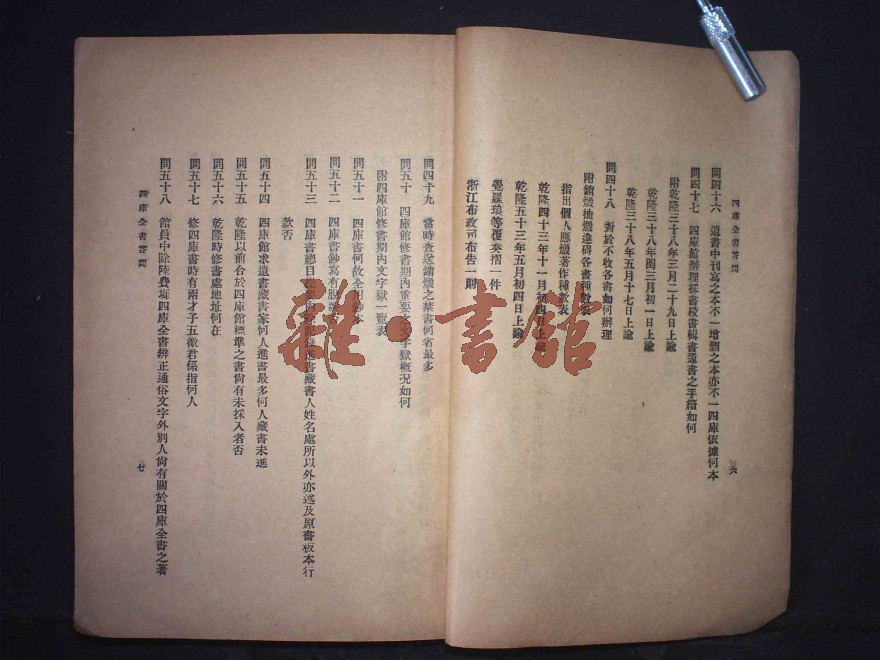 四庫全書答問
問四十六　遺書中刊寫之本不一增删之本亦不一四庫依據何本
問四十七　四庫館辦理採書校書輯書還書之手續如何
附乾隆三十八年三月二十九日上諭
乾隆三十八年閏三月初一日上諭
乾隆三十八年五月十七日上諭
問四十八　對於不收各書如何辦理
附銷燬抽燬違碍各書種數表
指出個人應燬著作種數表
乾隆四十三年十一月初四日上諭
乾隆五十三年五月初四日上諭
覺羅琅等覆奏摺一件
浙江布政司布告一則
六
問四十九　當時查遞銷燬之禁書何省最多
問五十　四庫館修書期內重要之文字獄概況如何
附四庫館修書期內文字獄一覽表
問五十一　四庫書何故全用鈔本
問五十二　四庫書鈔寫有
問五十三　四庫書總目 進書藏書人姓名處所以外亦述及原書板本行
款否
問五十四　四庫館求遺書藏書家何人進書最多何人藏書未進
問五十五　乾隆以前合於四庫館標準之書尙有未採入者否
問五十六　乾隆時修書處地址何在
問五十七　修四庫書時有兩才子五徵君係指何人
問五十八　館員中除陸費墀四庫全書辨正通俗文字外別人尙有關於四庫全書之著
四庫全書答問
七
雜·書館